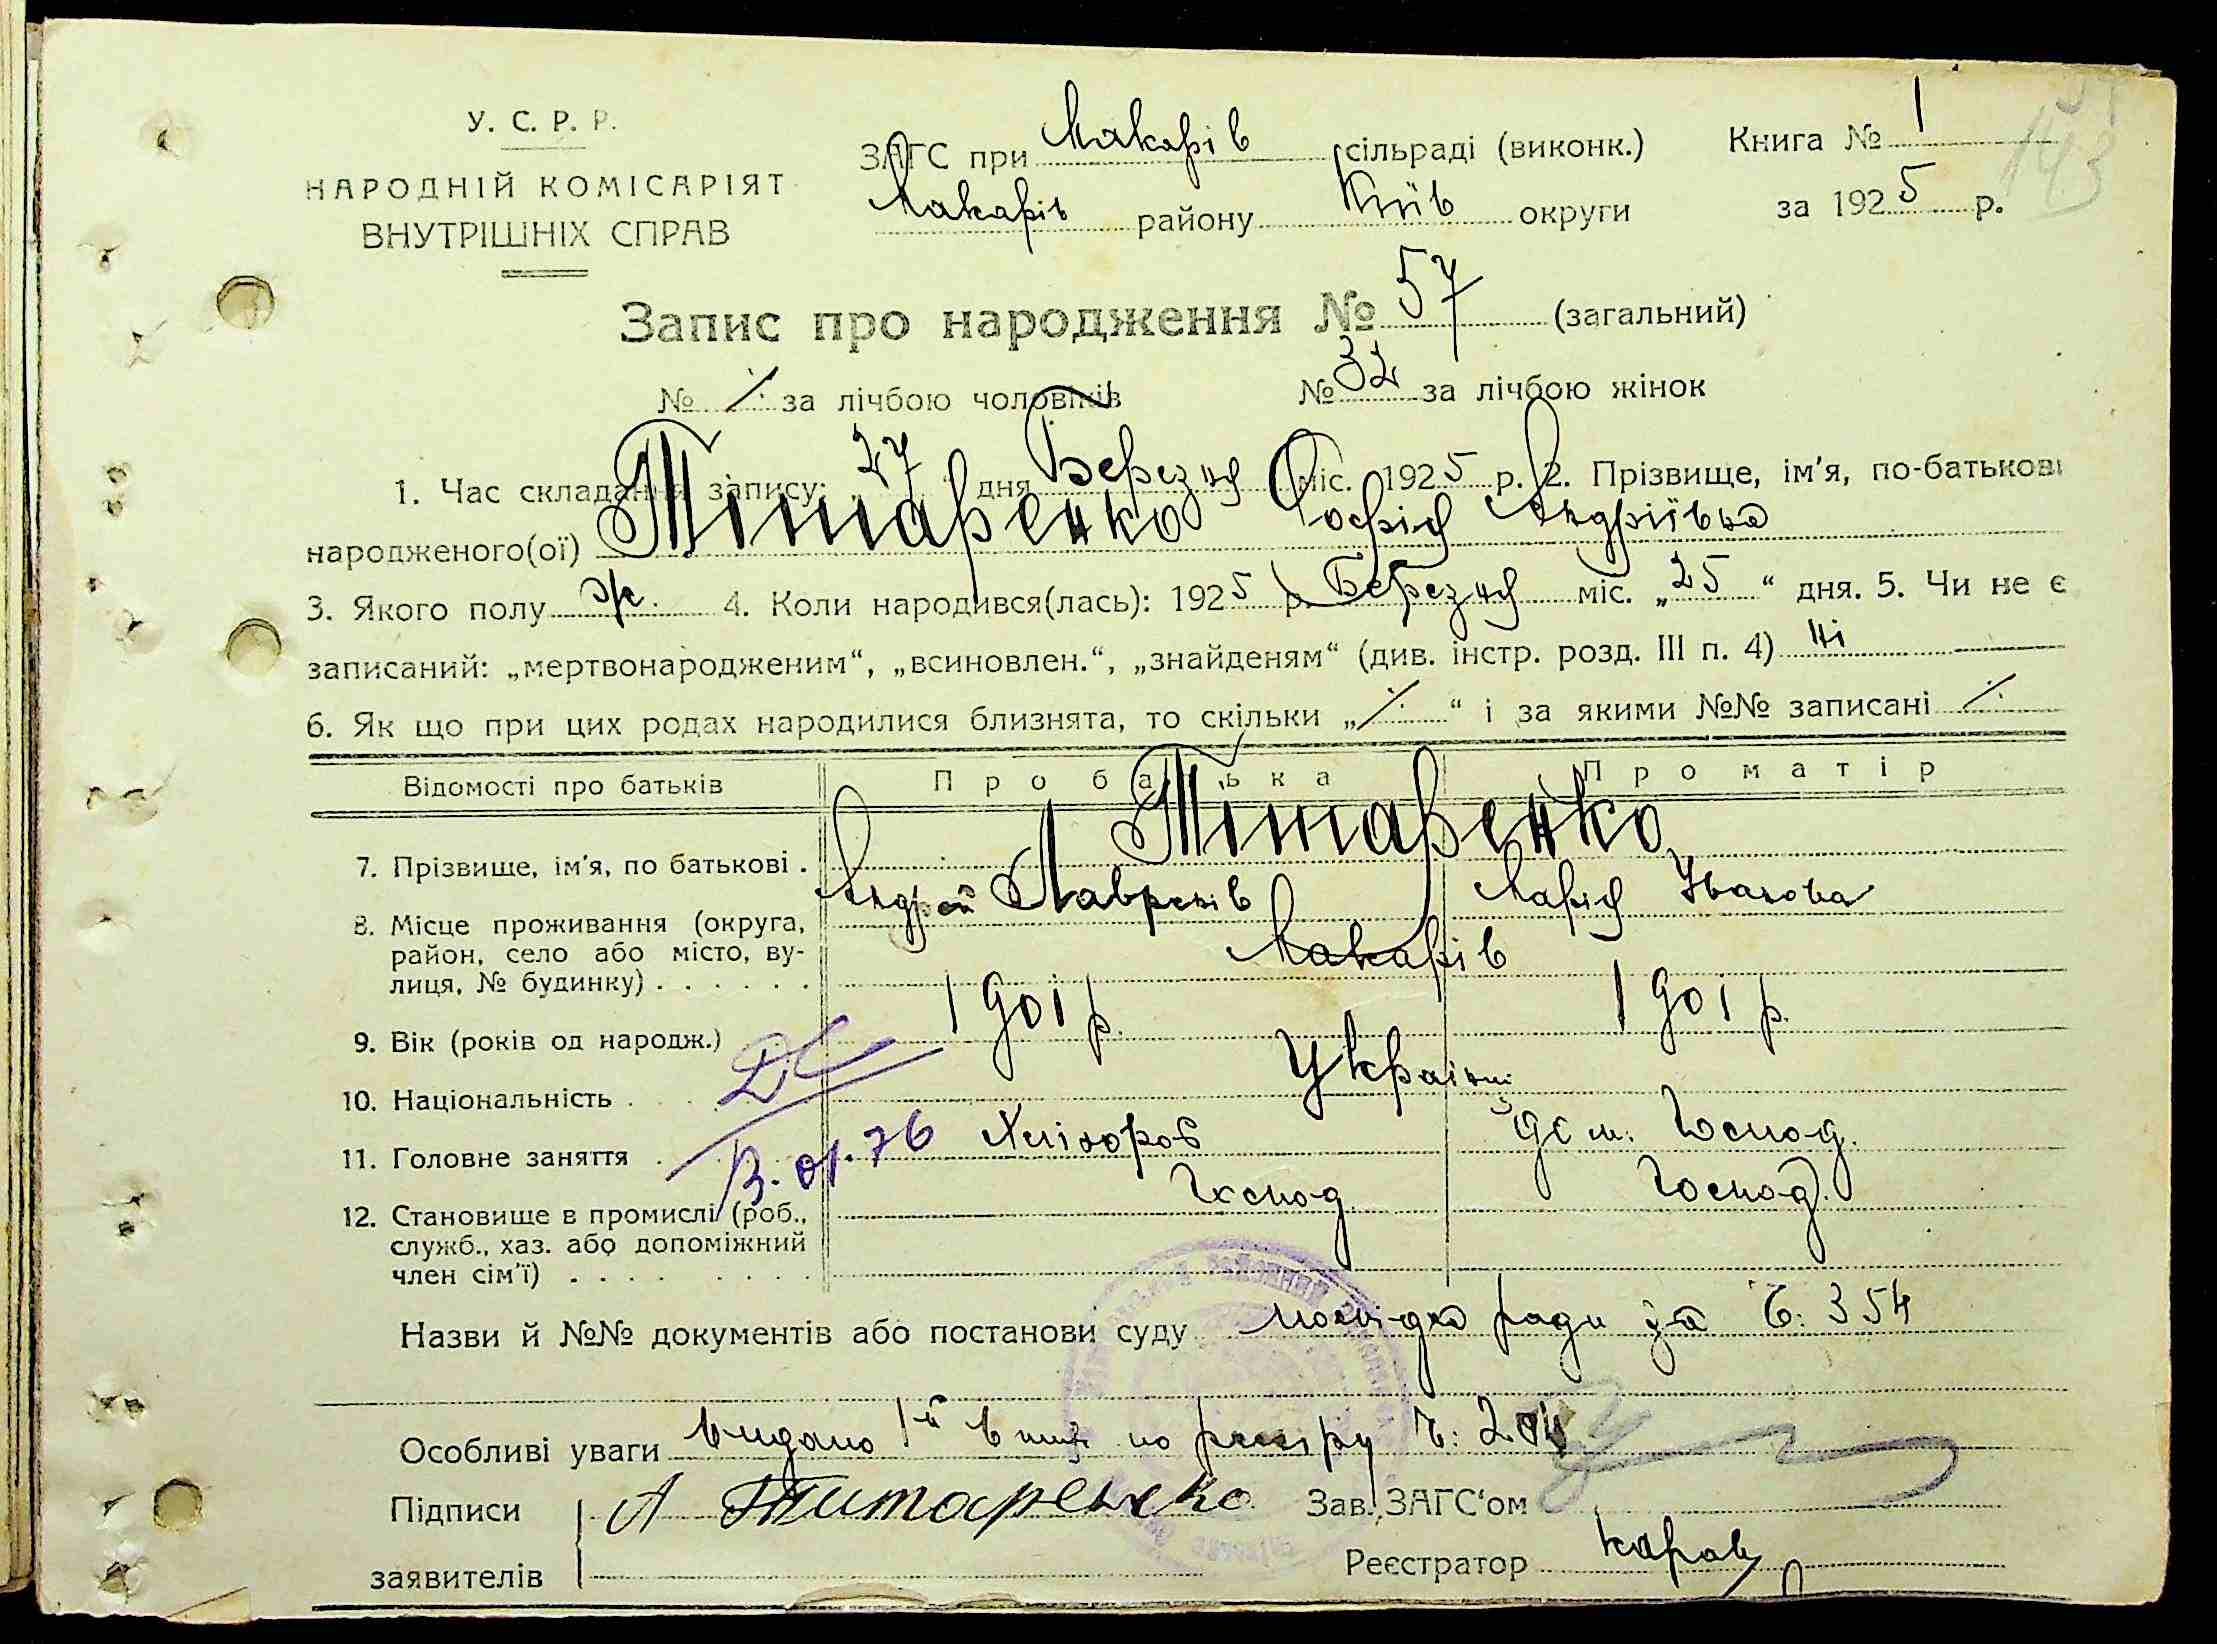 У. С. Р. Р.
НАРОДНІЙ КОМІСАРІЯТ
ВНУТРІШНІХ СПРАВ
ЗАГС при Макарів сільраді (виконк.)
Макарів району Київ округи
Книга № 1
за 1925 р.
143
Запис про народження № 57 (загальний)
№ ·/· за лічбою чоловіків № 32 за лічбою жінок
1. Час складання запису: „27“ дня Березня міс. 1925 р. 2. Прізвище, ім'я, по-батькові
народженого(ої) Тітаренко Софія Андріївна
3. Якого полу ж. 4. Коли народився(лась): 1925 р. Березня міс. „25“ дня. 5. Чи не є
записаний: „мертвонародженим“, „всиновлен.“, „знайденям“ (див. інстр. розд. III п. 4) ні
6. Як що при цих родах народилися близнята, то скільки „·/·“ і за якими №№ записані ·/·
Відомості про батьків Про батька Про матір
7. Прізвище, ім'я, по батькові . Тітаренко
Андрій Лаврєнів Марія Іванова
8. Місце проживання (округа,
район, село або місто, ву-
лиця, № будинку) . . . . . . Макарів
9. Вік (років од народж.) 1901 р. 1901 р.
10. Національність . Україн
11. Головне заняття . Хлібороб дом. господ.
12. Становище в промислі (роб.,
служб., хаз. або допоміжний
член сім'ї) . . . . Господ Господ.
13.01.76
Назви й №№ документів або постанови суду посвідка ради за Ч: 354
Особливі уваги видано 1й по реєстру Ч: 204
Підписи
заявителів
А Титаренко
Зав. ЗАГС'ом
Реєстратор